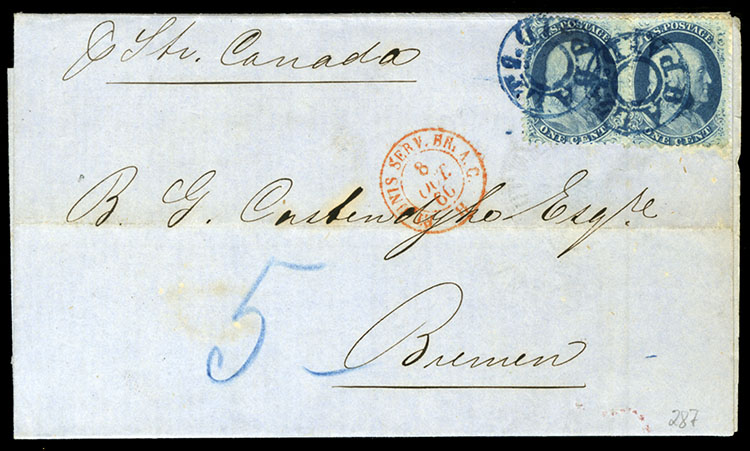 p Str. Canada
U.S. POSTAGE
U.S. POSTAGE
ONE CENT
ONE CENT
SERV. BR. A. C.
8
60
B. G. Castendyke Esqre
5
Bremen
287